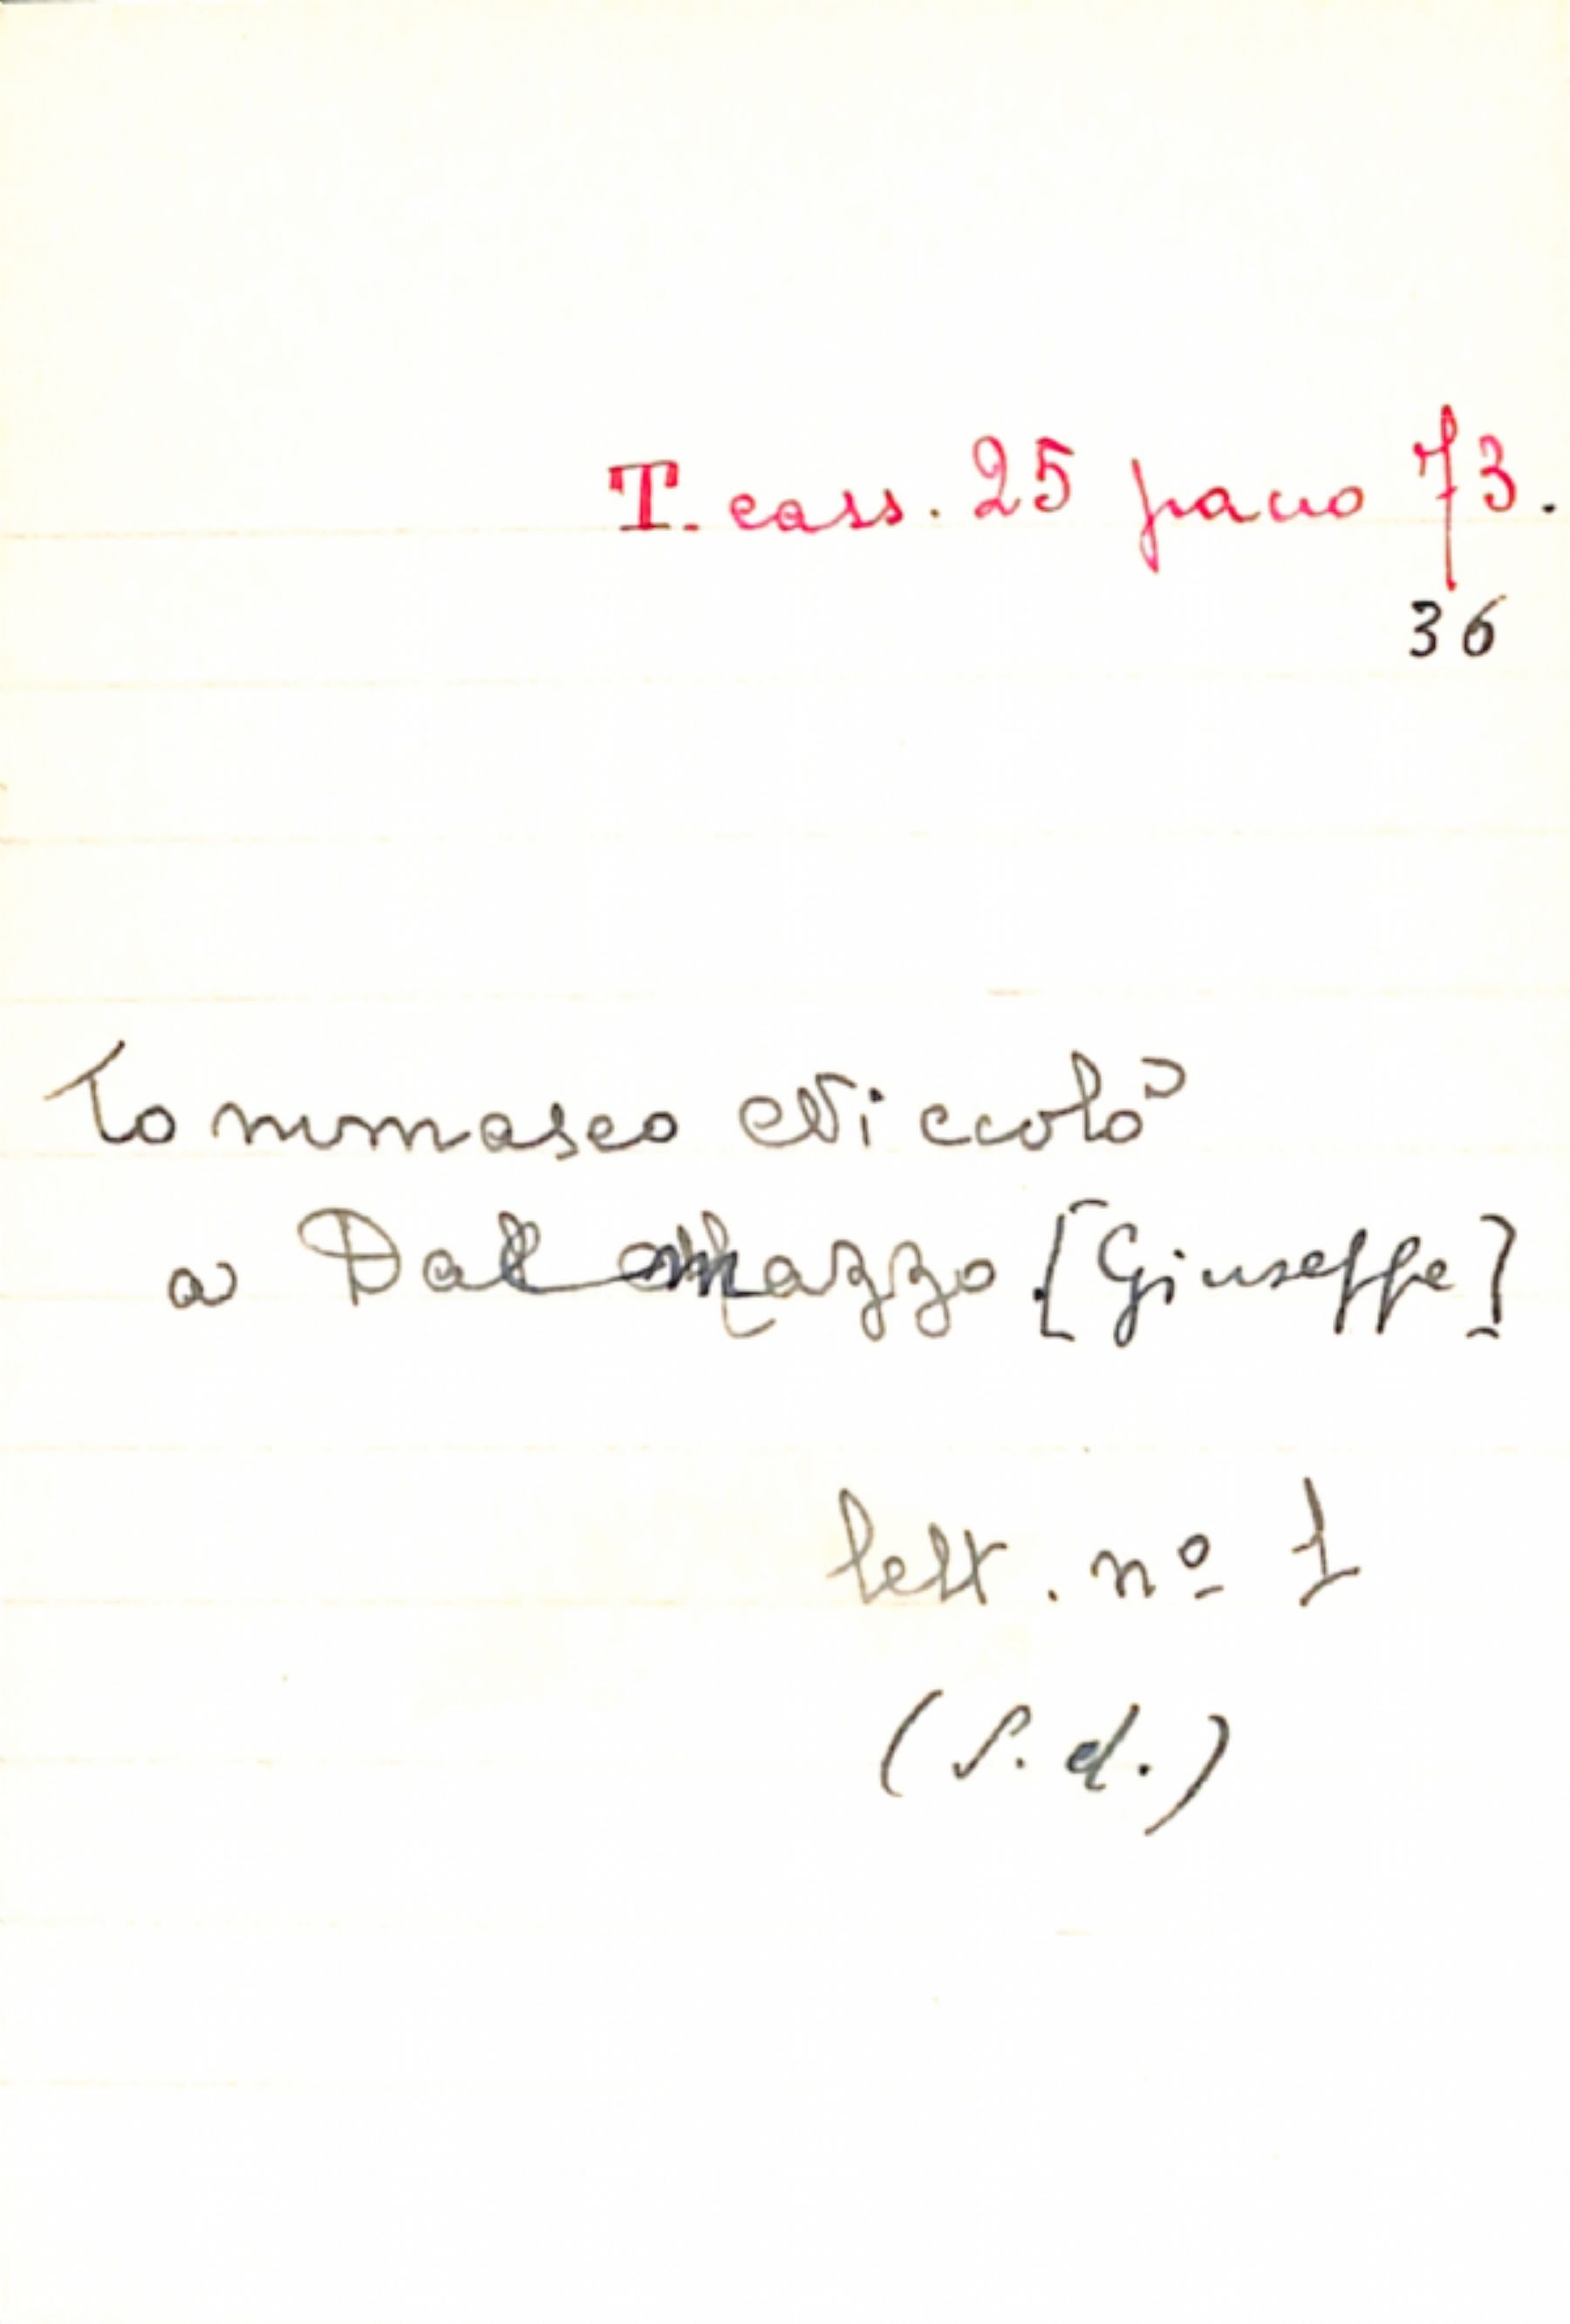 T. cass. 25 pacco 73.
36
Tommaseo Niccolò
a Dalmazzo. [Giuseppe]
lett. nº 1
(s. d.)